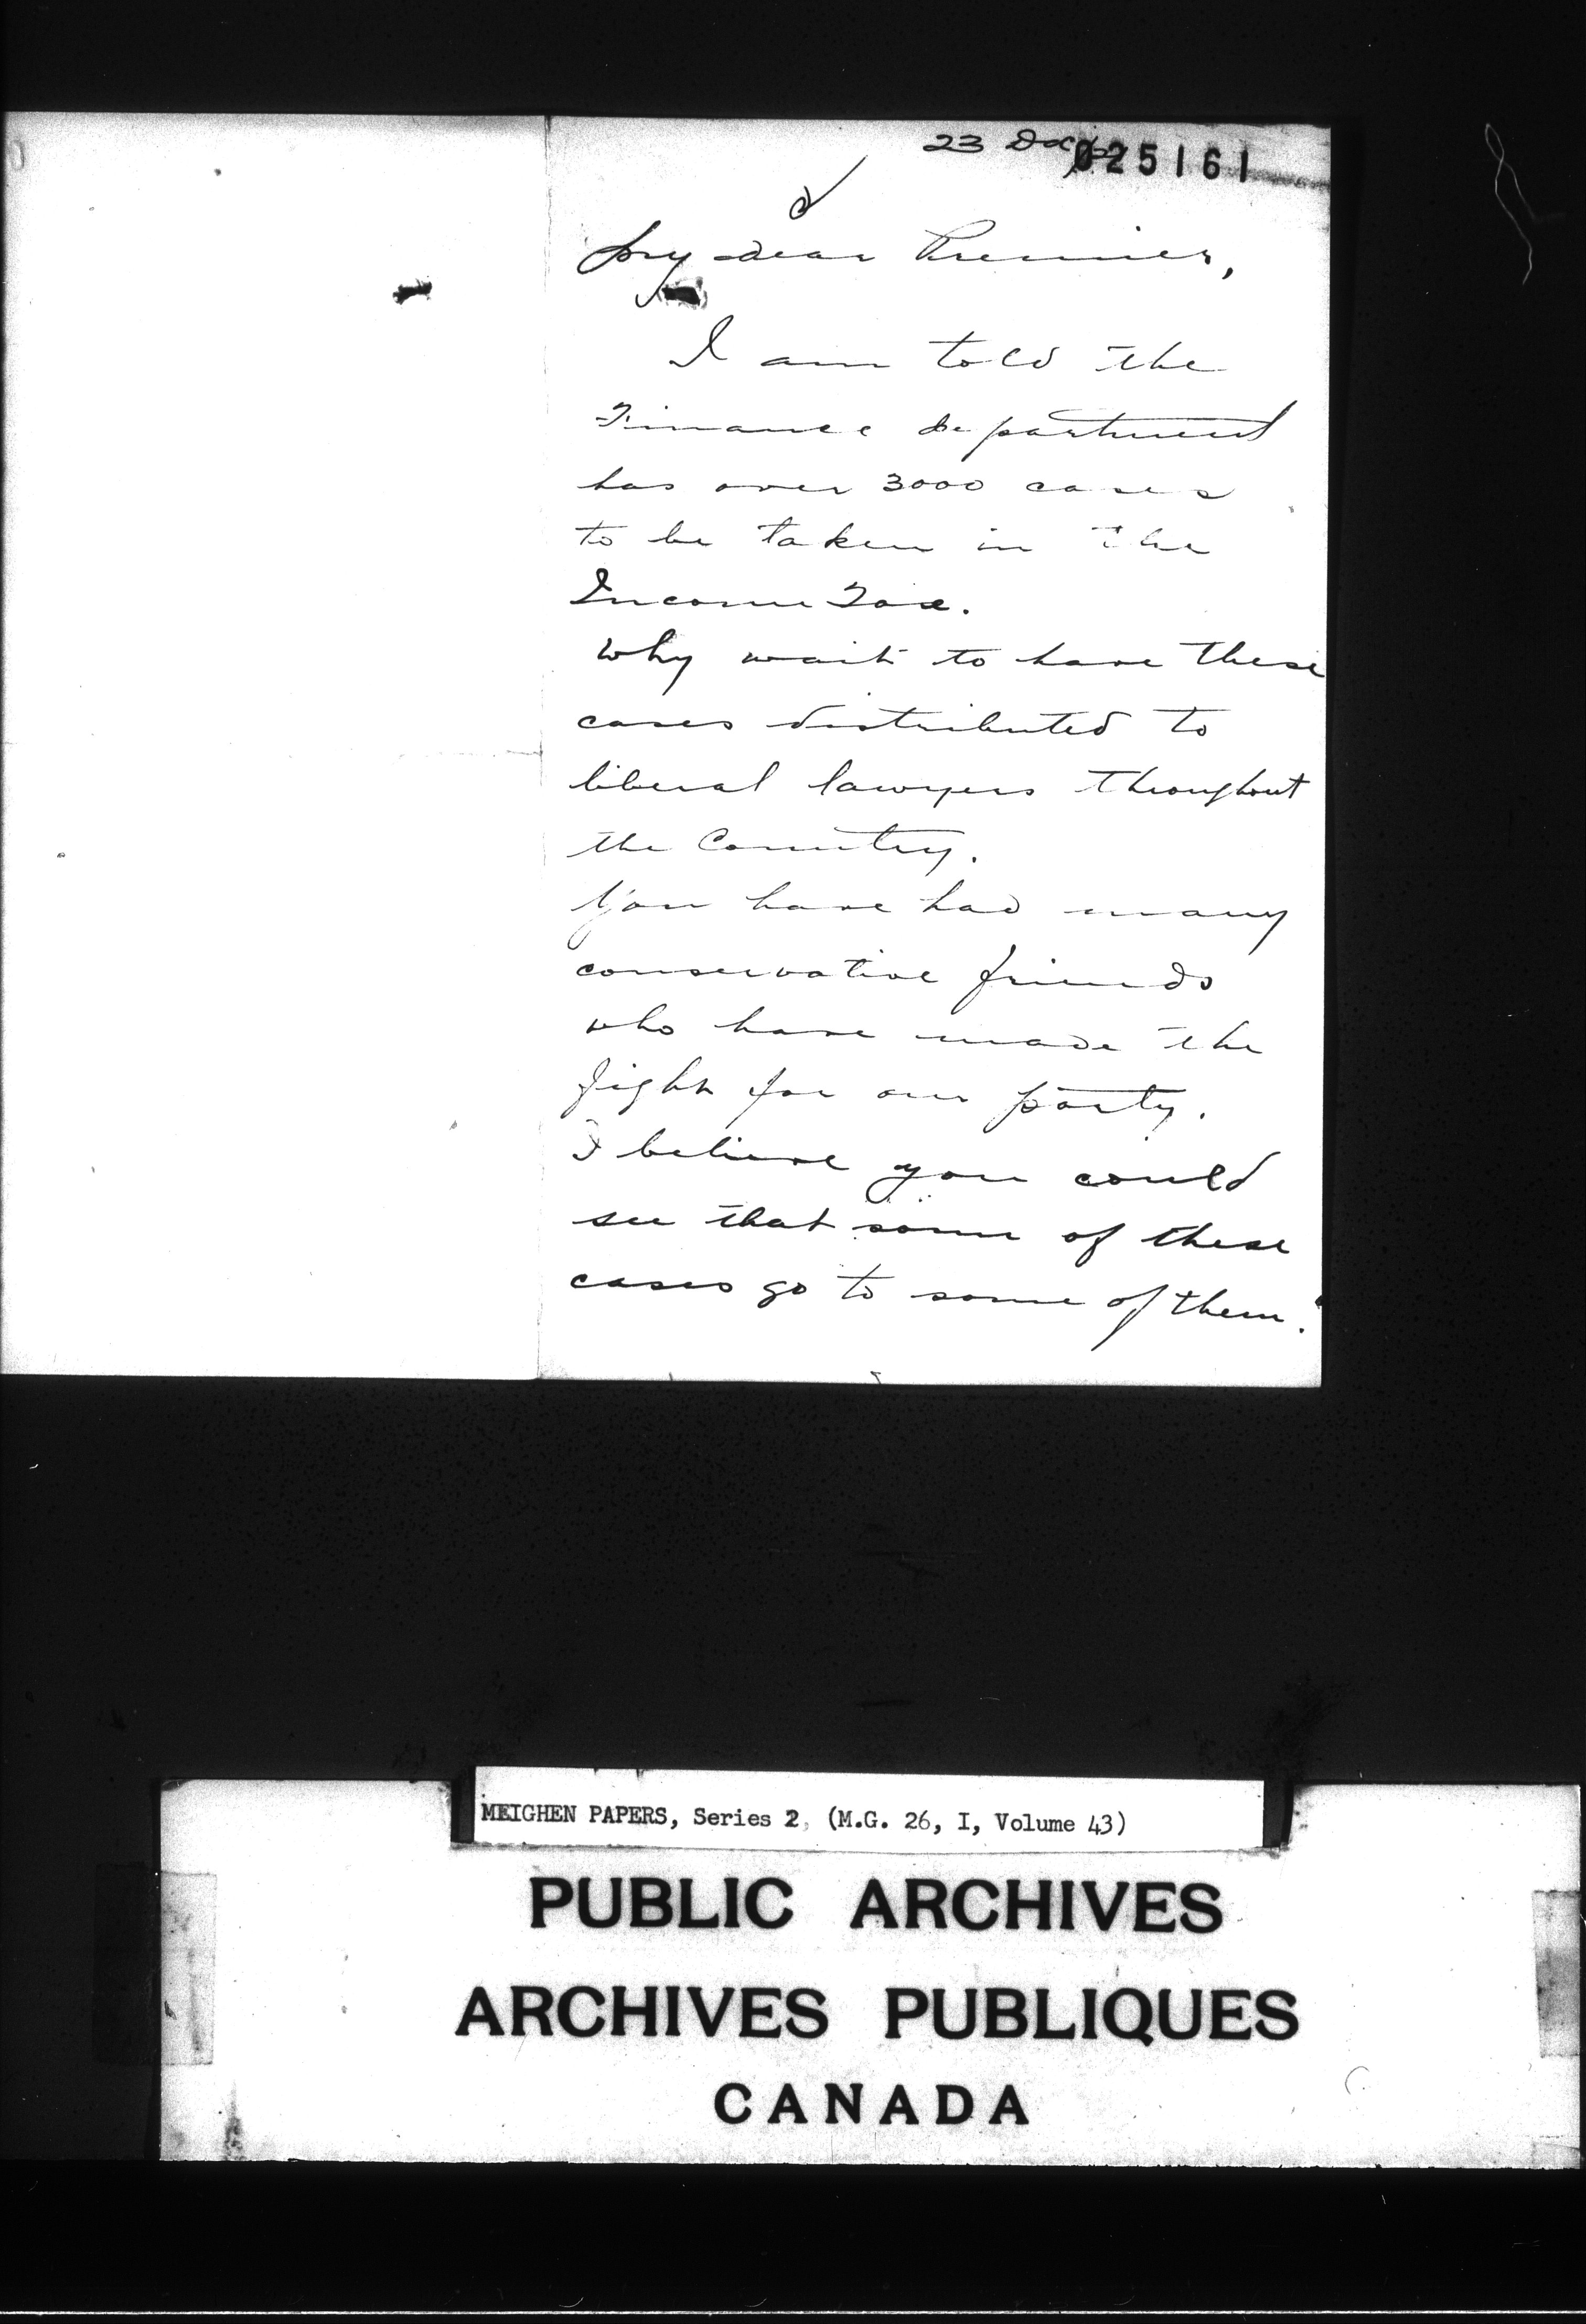 23 Dec
025161
My dear Premier,
I am told the
Finance department
has over 3000 cases
to be taken in the
Income Tax.
Why wait to have these
cases distributed to
liberal lawyers throughout
the Country.
You have had many
conservative friends
who have made the
fight for our party.
I believe you could
see that some of these
cases go to some of them.
MEIGHEN PAPERS, Series 2, (M.G. 26, I, Volume 43)
PUBLIC ARCHIVES
ARCHIVES PUBLIQUES
CANADA